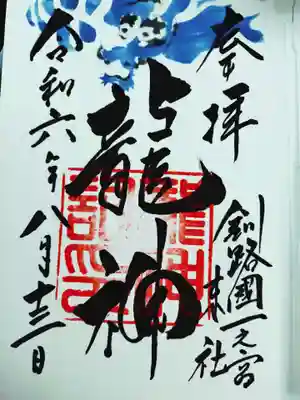 奉拝
釧路國一之宮
社
龍神
令和六年八月十三日